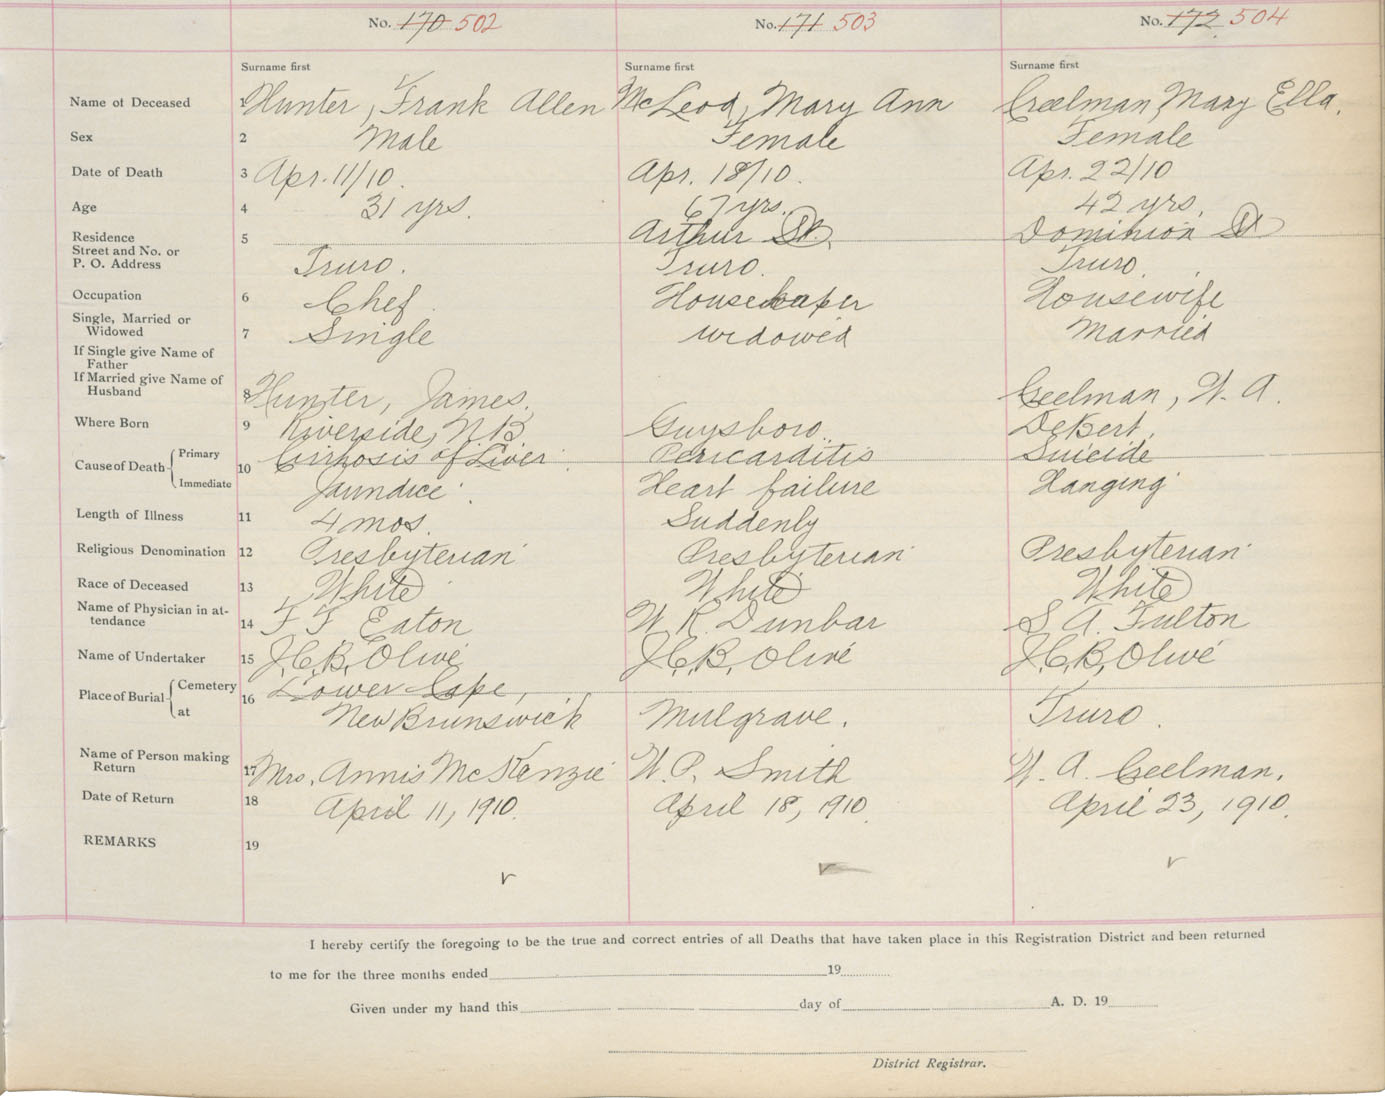 No. 170 502 No. 171 503 No. 172 504
Surname first Surname first Surname first
Name of Deceased 1 Hunter, Frank Allen McLeod, Mary Ann Creelman, Mary Ella.
Sex 2 Male Female Female
Date of Death 3 Apr. 11/10. Apr. 18/10. Apr. 22/10
Age 4 31 yrs. 67 yrs. 42 yrs.
Residence 5 Arthur St. Dominion St
Street and No. or
P. O. Address Truro. Truro. Truro.
Occupation 6 Chef Housekeeper Housewife
Single, Married or
Widowed 7 Single widowed Married
If Single give Name of
Father
If Married give Name of
Husband 8 Hunter, James. Creelman, W. A.
Where Born 9 Riverside, N.B. Guysboro. DeBert.
Cause of Death Primary 10 Cirrhosis of Liver. Pericarditis Suicide
Immediate Jaundice. Heart failure Hanging
Length of Illness 11 4 mos. Suddenly
Religious Denomination 12 Presbyterian Presbyterian Presbyterian
Race of Deceased 13 White White White
Name of Physician in at-
tendance 14 F F Eaton W. R. Dunbar S. A. Fulton
Name of Undertaker 15 J.C.B. Olivé J.C.B. Olivé J.C.B. Olivé
Place of Burial Cemetery 16 Lower Cape,
at New Brunswick Mulgrave. Truro.
Name of Person making
Return 17 Mrs. Annis McKenzie W. P. Smith W. A. Creelman.
Date of Return 18 April 11, 1910. April 18, 1910. April 23, 1910.
REMARKS 19
I hereby certify the foregoing to be the true and correct entries of all Deaths that have taken place in this Registration District and been returned
to me for the three months ended 19
Given under my hand this day of A. D. 19
District Registrar.